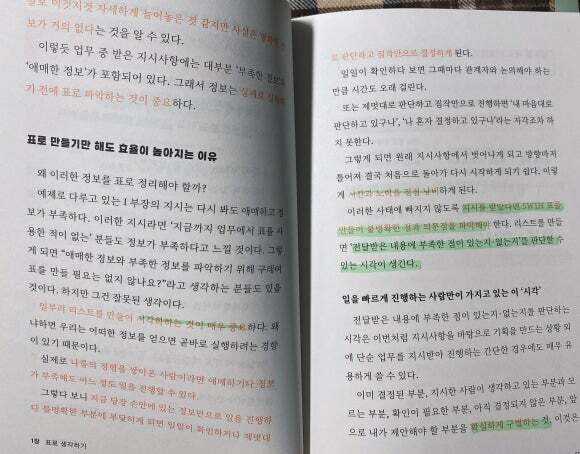 보가 거의 없다는 것을 알 수 있다.
이렇듯 업무 중 받은 지시사항에는 대부분 ‘부족한 정보’와
‘애매한 정보’가 포함되어 있다. 그래서 정보는
가 전에 표로 파악하는 것이 중요하다.
표로 만들기만 해도 효율이 높아지는 이유
왜 이러한 정보를 표로 정리해야 할까?
예제로 다루고 있는 I 부장의 지시는 다시 봐도 애매하고 정
보가 부족하다. 이러한 지시라면 ‘지금까지 업무에서 표를 사
용한 적이 없는’ 분들도 정보가 부족하다고 느낄 것이다. 그렇
게 되면 “애매한 정보와 부족한 정보를 파악하기 위해 구태여
표를 만들 필요는 없지 않나요?”라고 생각하는 분들도 있을
것이다. 하지만 그건 잘못된 생각이다.
일부러 리스트를 만들어 시각화하는 것이 매우 중요하다. 왜
냐하면 우리는 어떠한 정보를 얻으면 곧바로 실행하려는 경향
이 있기 때문이다.
실제로 나름의 경험을 쌓아온 사람이라면 애매하거나 정보
가 부족해도 어느 정도 일을 진행할 수 있다.
그렇다 보니 지금 당장 손안에 있는 정보만으로 일을 진행하
다 불명확한 부분에 부딪하게 되면 일일이 확인하거나 제멋대
1장 표로 생각하기
로 판단하고 짐작만으로 결정하게 된다.
일일이 확인하다 보면 그때마다 관계자와 논의해야 하는
만큼 시간도 오래 걸린다.
또는 제멋대로 판단하고 짐작만으로 진행하면 ‘내 마음대로
판단하고 있구나’, ‘나 혼자 결정하고 있구나’라는 자각조차 하
지 못한다.
그렇게 되면 원래 지시사항에서 벗어나게 되고 방향마저
틀어져 결국 처음으로 돌아가 다시 시작하게 되기 쉽다. 이렇
게 시간과 노력을 점점 낭비하게 된다.
이러한 사태에 빠지지 않도록 지시를 받았다면 5W1H 표를
만들어 불명확한 점과 의문점을 파악해야 한다. 리스트를 만들
면 ‘전달받은 내용에 부족한 점이 있는지·없는지’를 판단할 수
있는 시각이 생긴다.
일을 빠르게 진행하는 사람만이 가지고 있는 이 ‘시각’
전달받은 내용에 부족한 점이 있는지·없는지를 판단하는
시각은 이번처럼 지시사항을 바탕으로 기획을 만드는 상황 외
에 단순 업무를 지시받아 진행하는 간단한 경우에도 매우 유
용하게 쓸 수 있다.
이미 결정된 부분, 지시한 사람이 생각하고 있는 부분과 모
르는 부분, 확인이 필요한 부분, 아직 결정되지 않은 부분, 앞
으로 내가 제안해야 할 부분을 확실하게 구별하는 것, 이것은